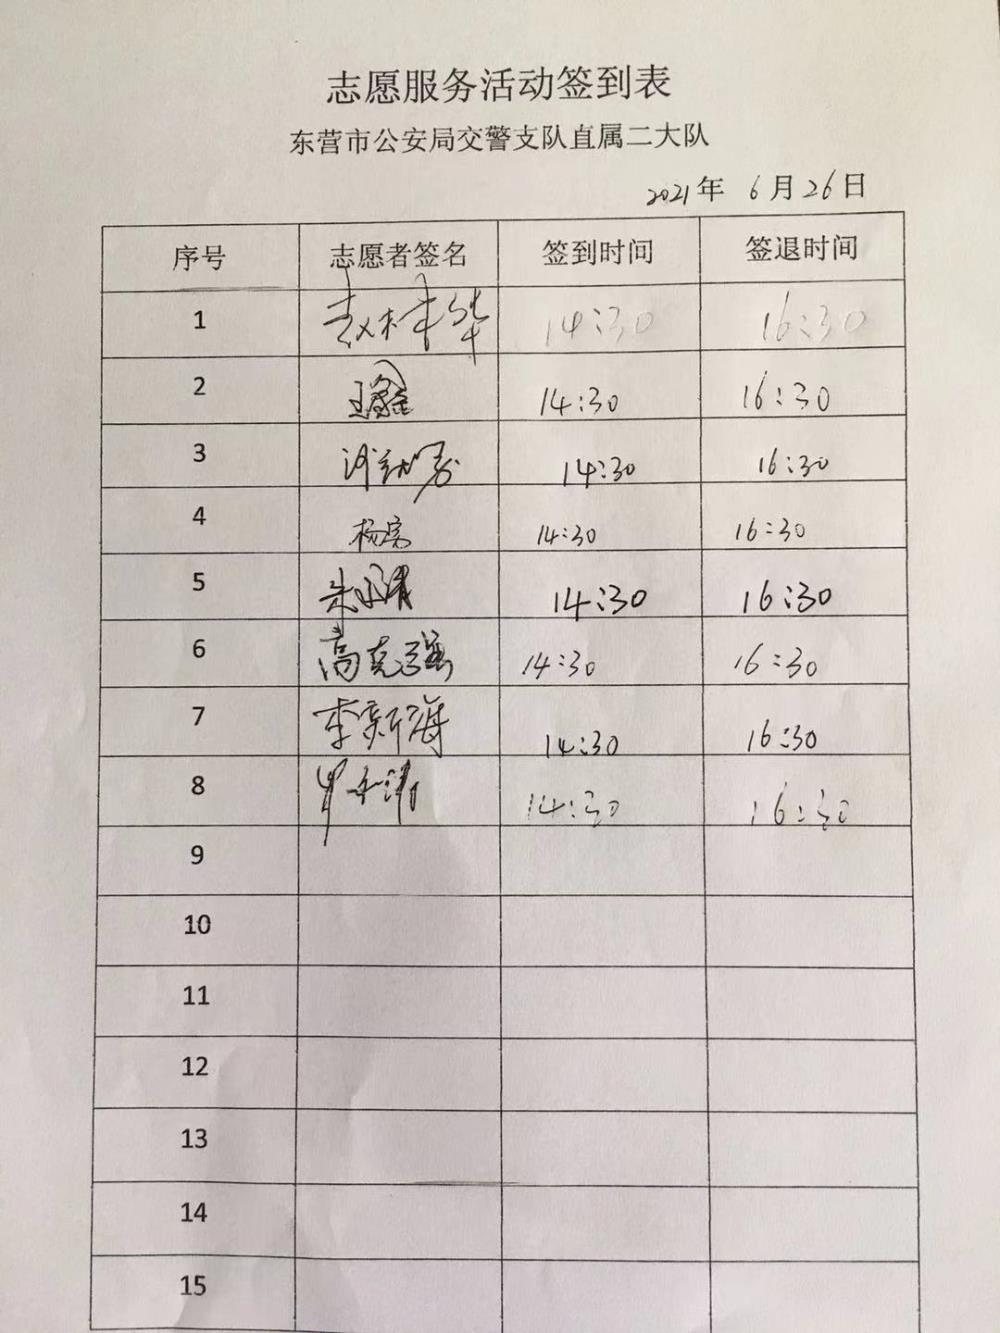 志愿服务活动签到表
东营市公安局交警支队直属二大队
2021年 6月26日
序号 志愿者签名 签到时间 签退时间
1 14:30 16:30
2 王鑫 14:30 16:30
3 14:30 16:30
4 杨 14:30 16:30
5 朱 14:30 16:30
6 高克强 14:30 16:30
7 李新海 14:30 16:30
8 14:30 16:30
9
10
11
12
13
14
15